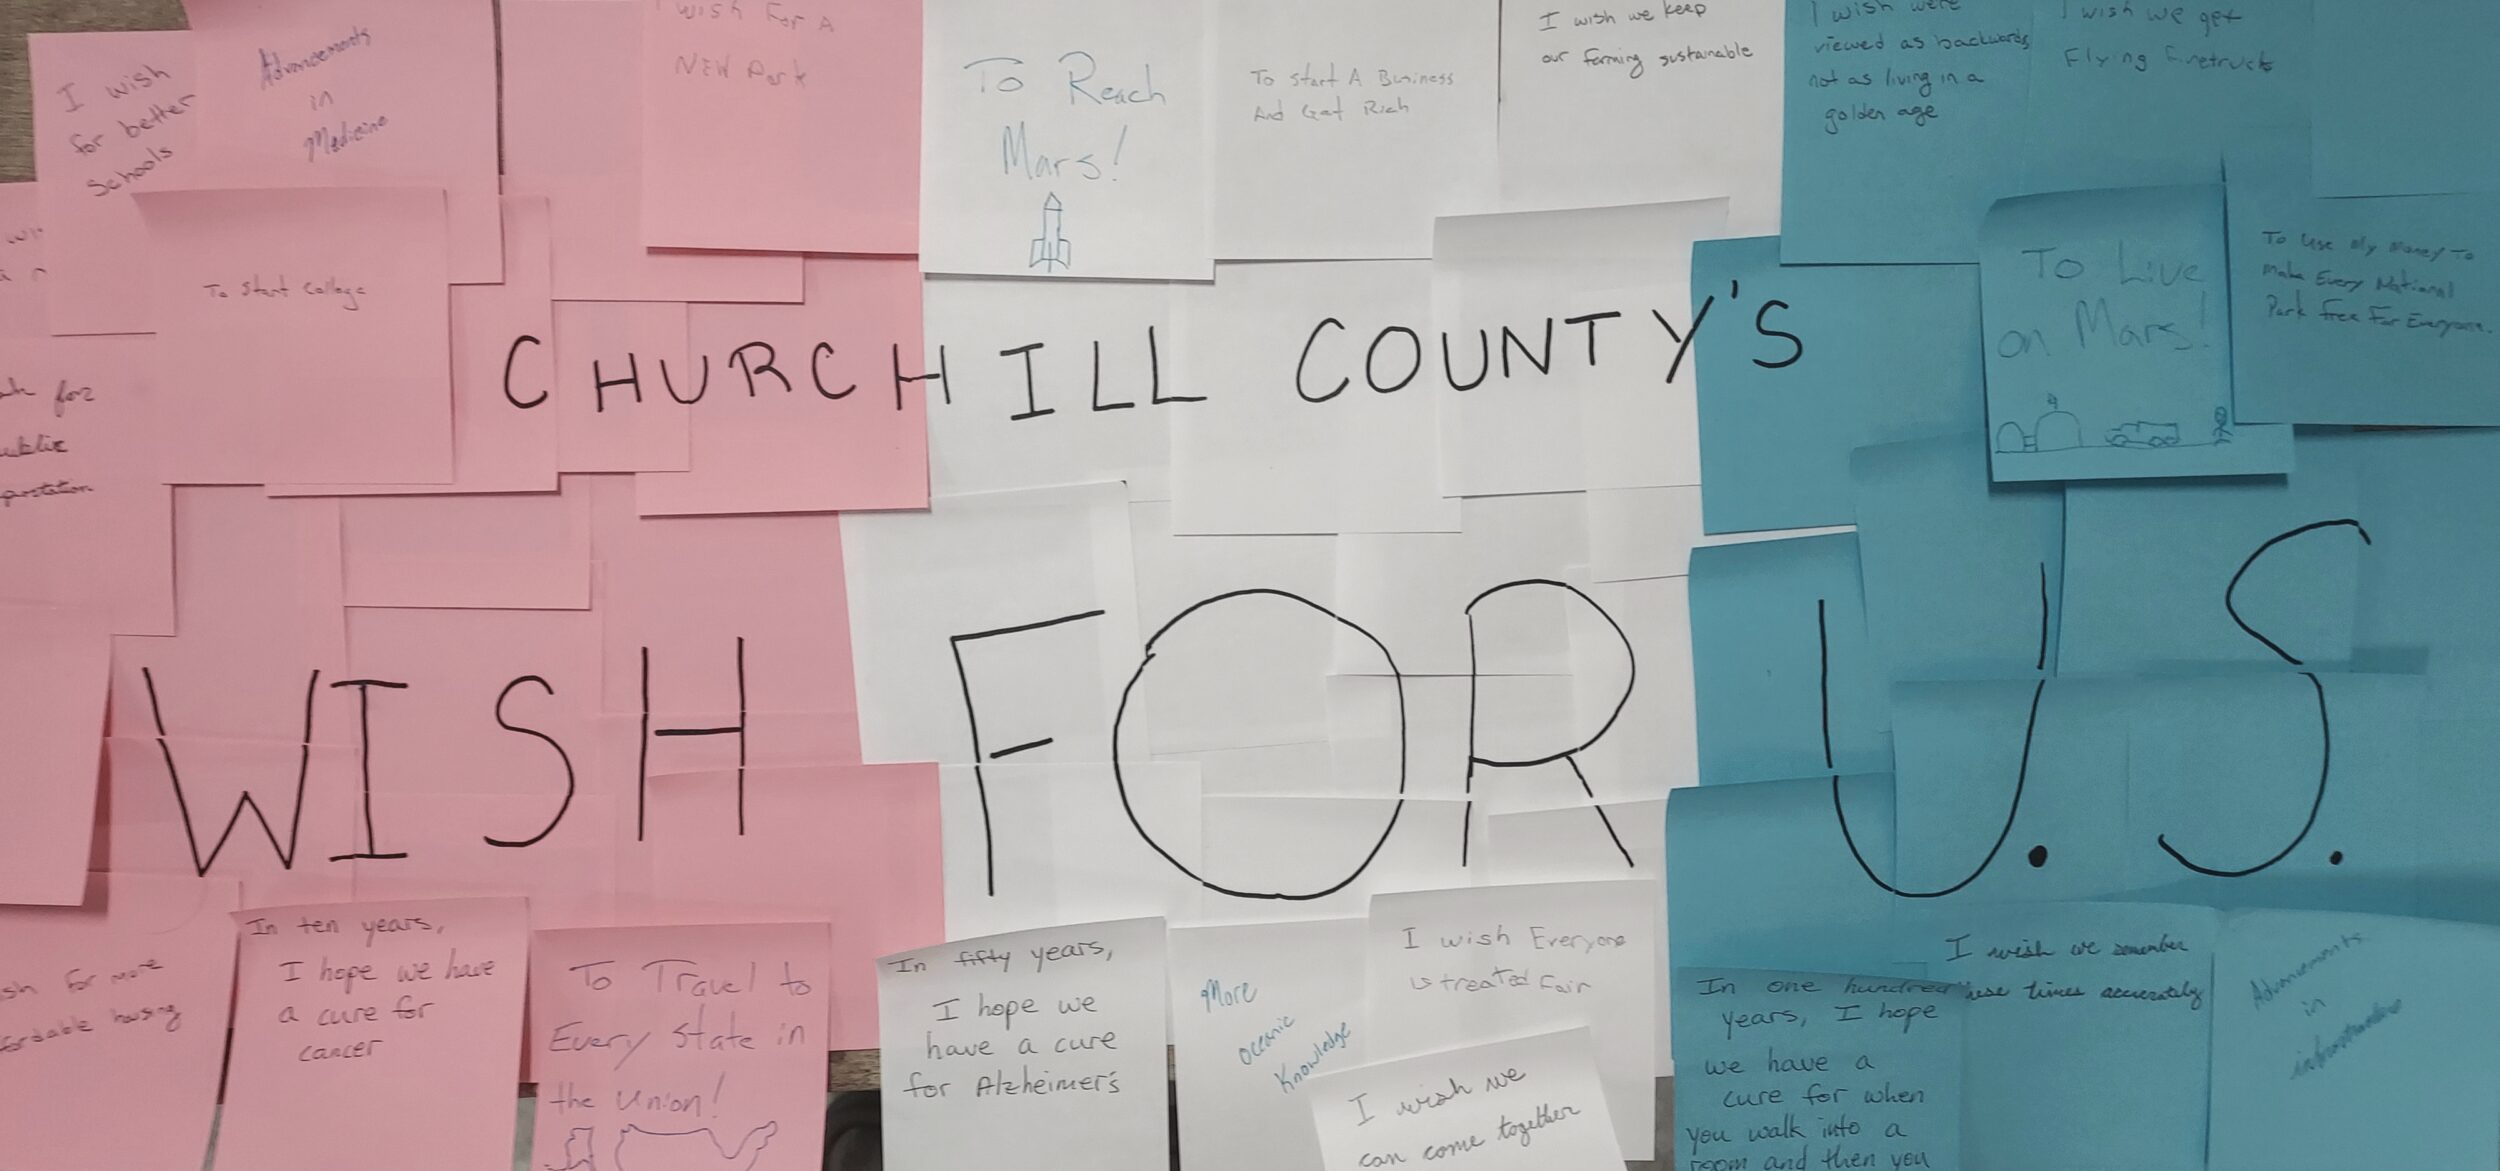 I wish
for better
Schools
Advancements
in
Medicine
I wish For A
NEW Park
To Reach
Mars!
To start A Business
And Get Rich
I wish we keep
our farming sustainable
I wish were
viewed as backwards
not as living in a
golden age
I wish we get
Flying firetrucks
To Start College
To Live
on Mars!
To Use My Money To
Make Every National
Park Free For Everyone.
for
CHURCHILL COUNTY'S
WISH FOR U.S.
for more
housing
In ten years,
I hope we have
a cure for
cancer
To Travel to
Every state in
the Union!
In fifty years,
I hope we
have a cure
for Alzheimer's
More
Oceanic
Knowledge
I wish Everyone
is treated Fair
I wish we
can come together
In one hundred
years, I hope
we have a
cure for when
you walk into a
room and then you
I wish we remember
these times accurately
Advancements
in